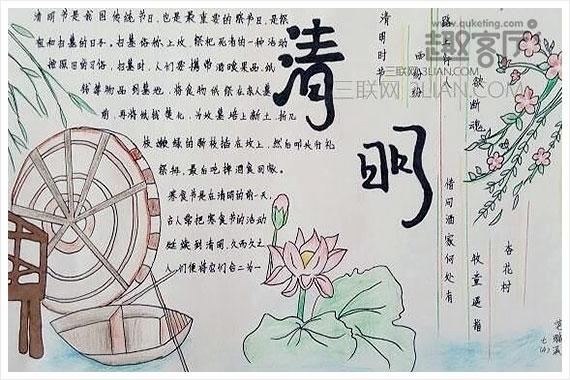 清明节是我国传统节日,也是最重要的祭节日,是祭
祖和扫墓的日子。扫墓俗称上坟,祭祀死者的一种活动
按照旧的习俗,扫墓时,人们要携带酒食果品,纸
钱等物品到墓地,将食物供祭在亲人墓
前,再将纸钱焚化,为坟墓培上新土,折几
枝嫩绿的新枝插在坟上,然后叩头行礼
祭拜,最后吃掉酒食回家。
寒食节是在清明的前一天,
古人常把寒食节的活动
延续到清明,久而久之
人们便将它们合二为一
清明
清明时节
路上行
欲断魂
借问酒家何处有
牧童遥指
杏花村
www.quketing.com
趣客厅
三联网3LIAN.COM
三联网3LIAN.COM